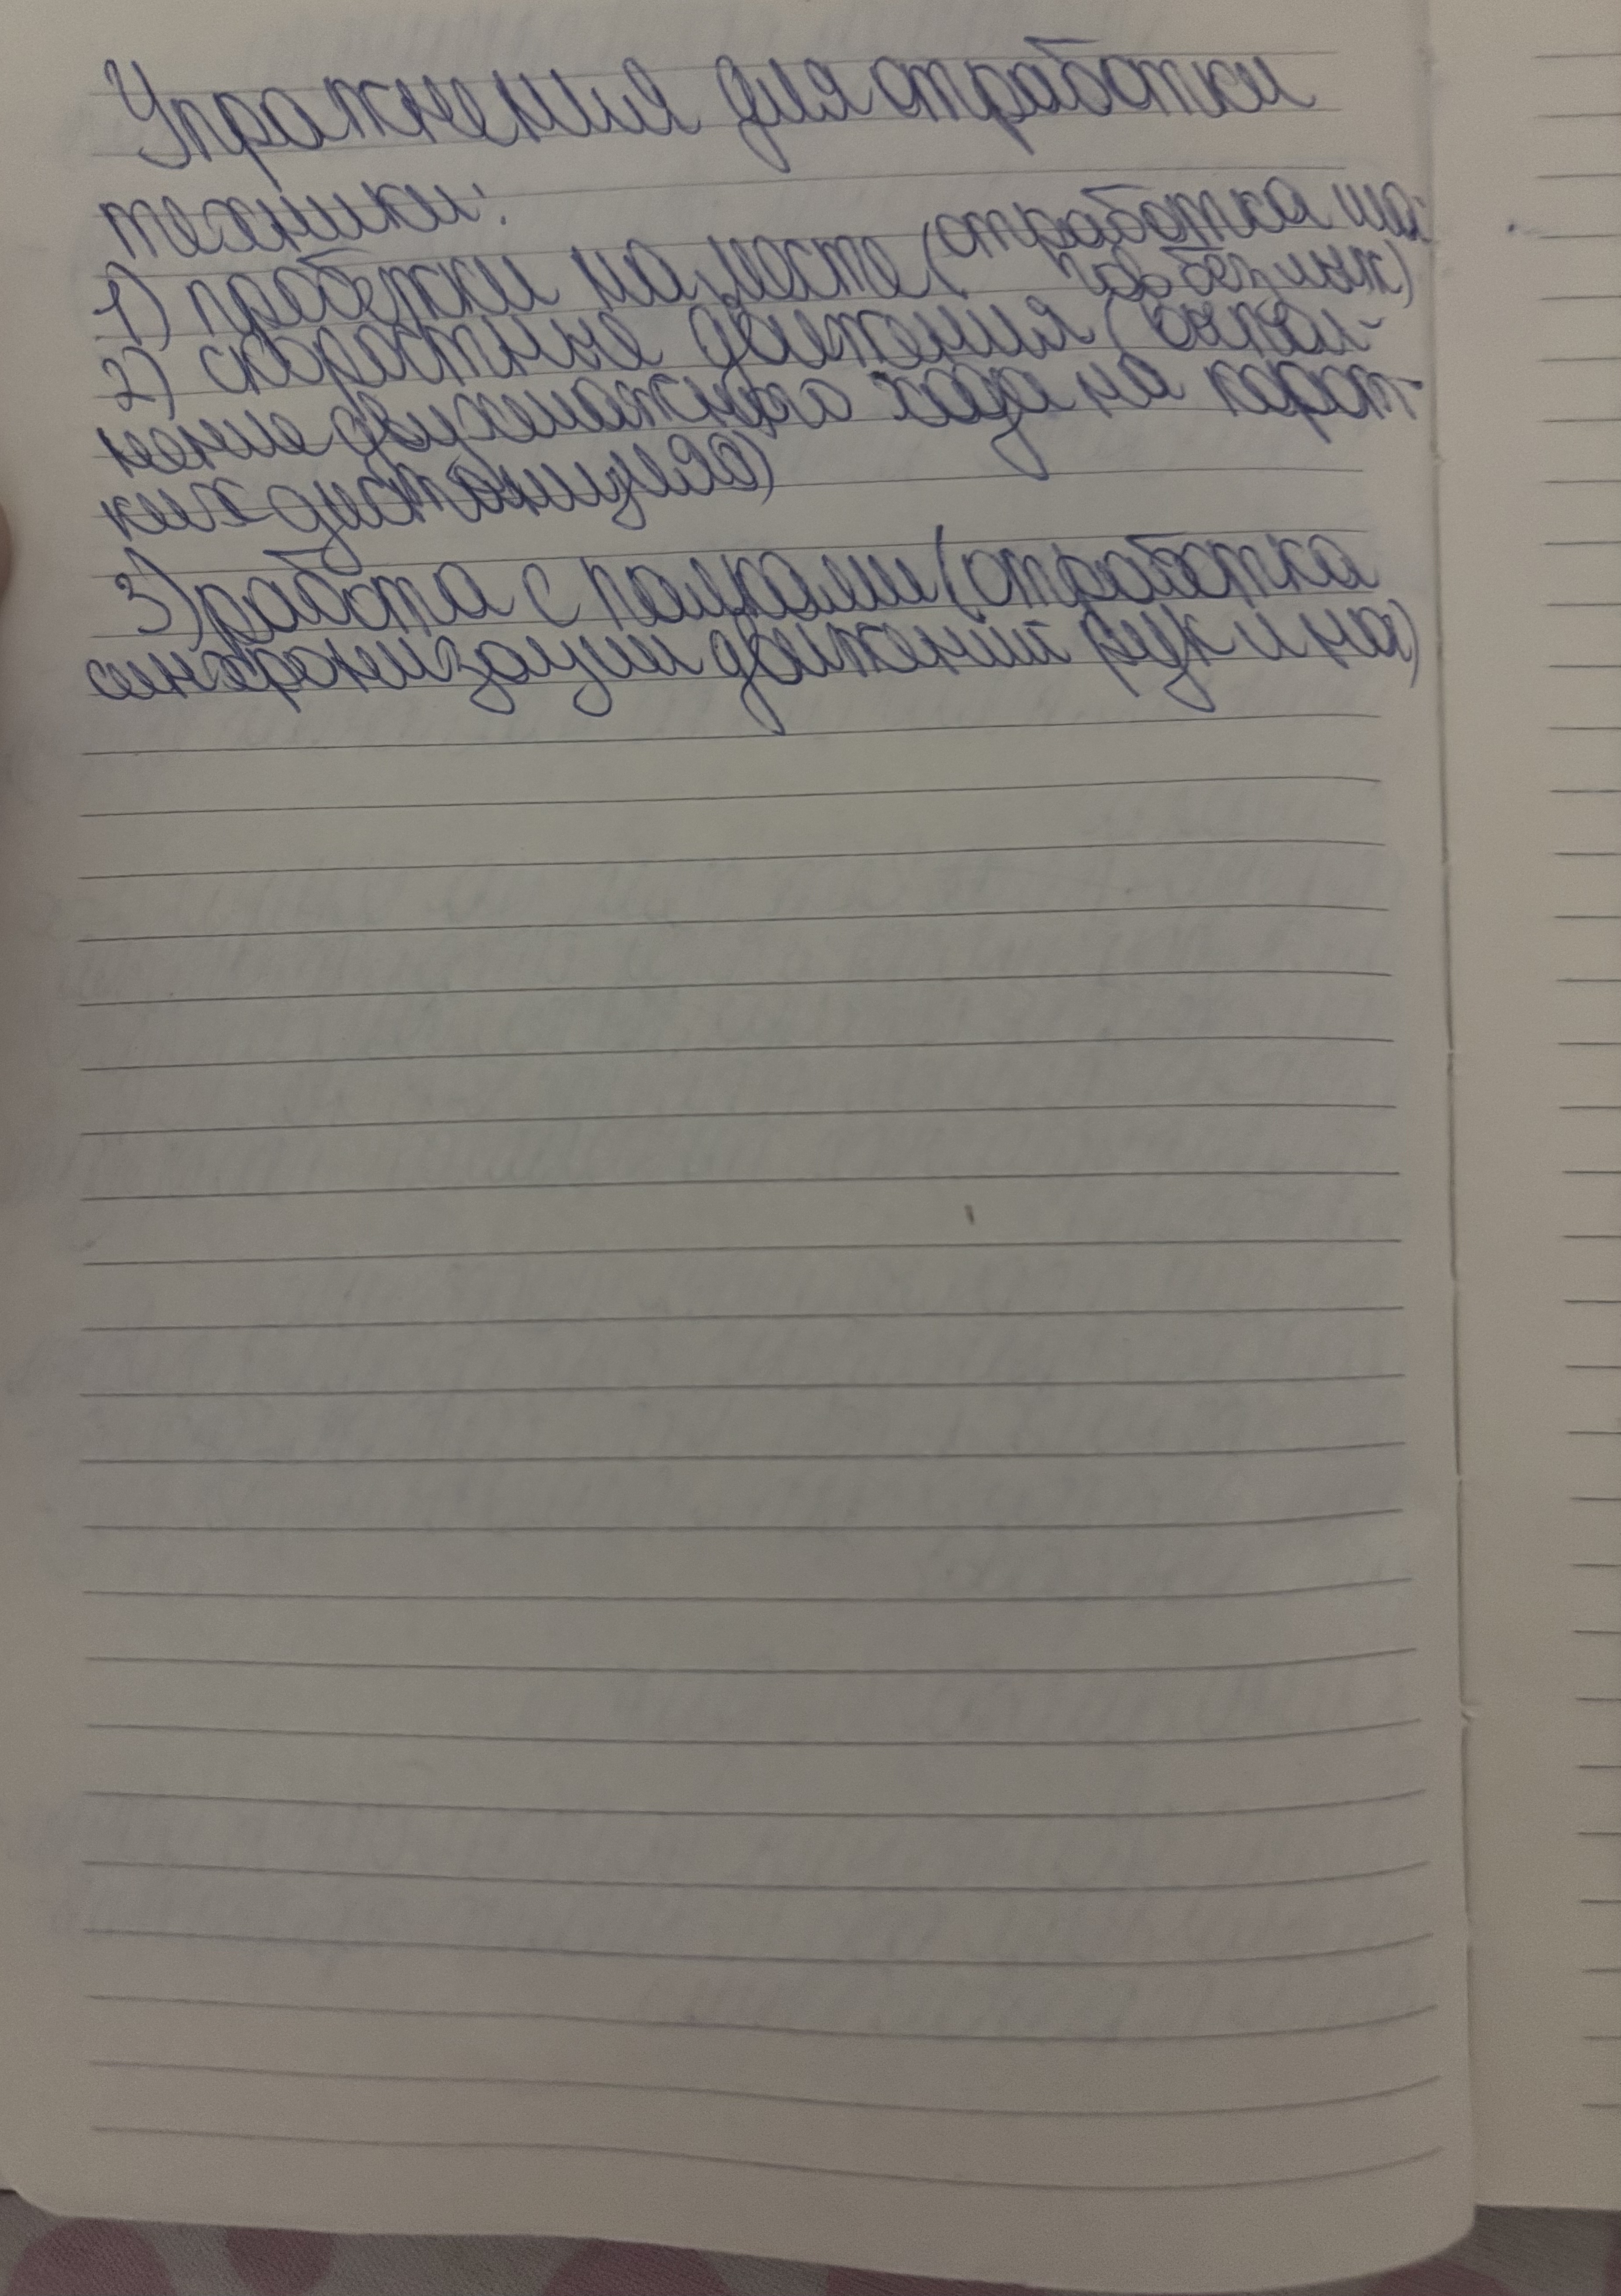 Упражнения для отработки
техники:
1) пробежки на месте (отработка ша-
гов без лыж)
2) скоростные движения (выпол-
нение двухшажного хода на корот-
ких дистанциях)
3) работа с палками (отработка
синхронизации движений рук и ног)